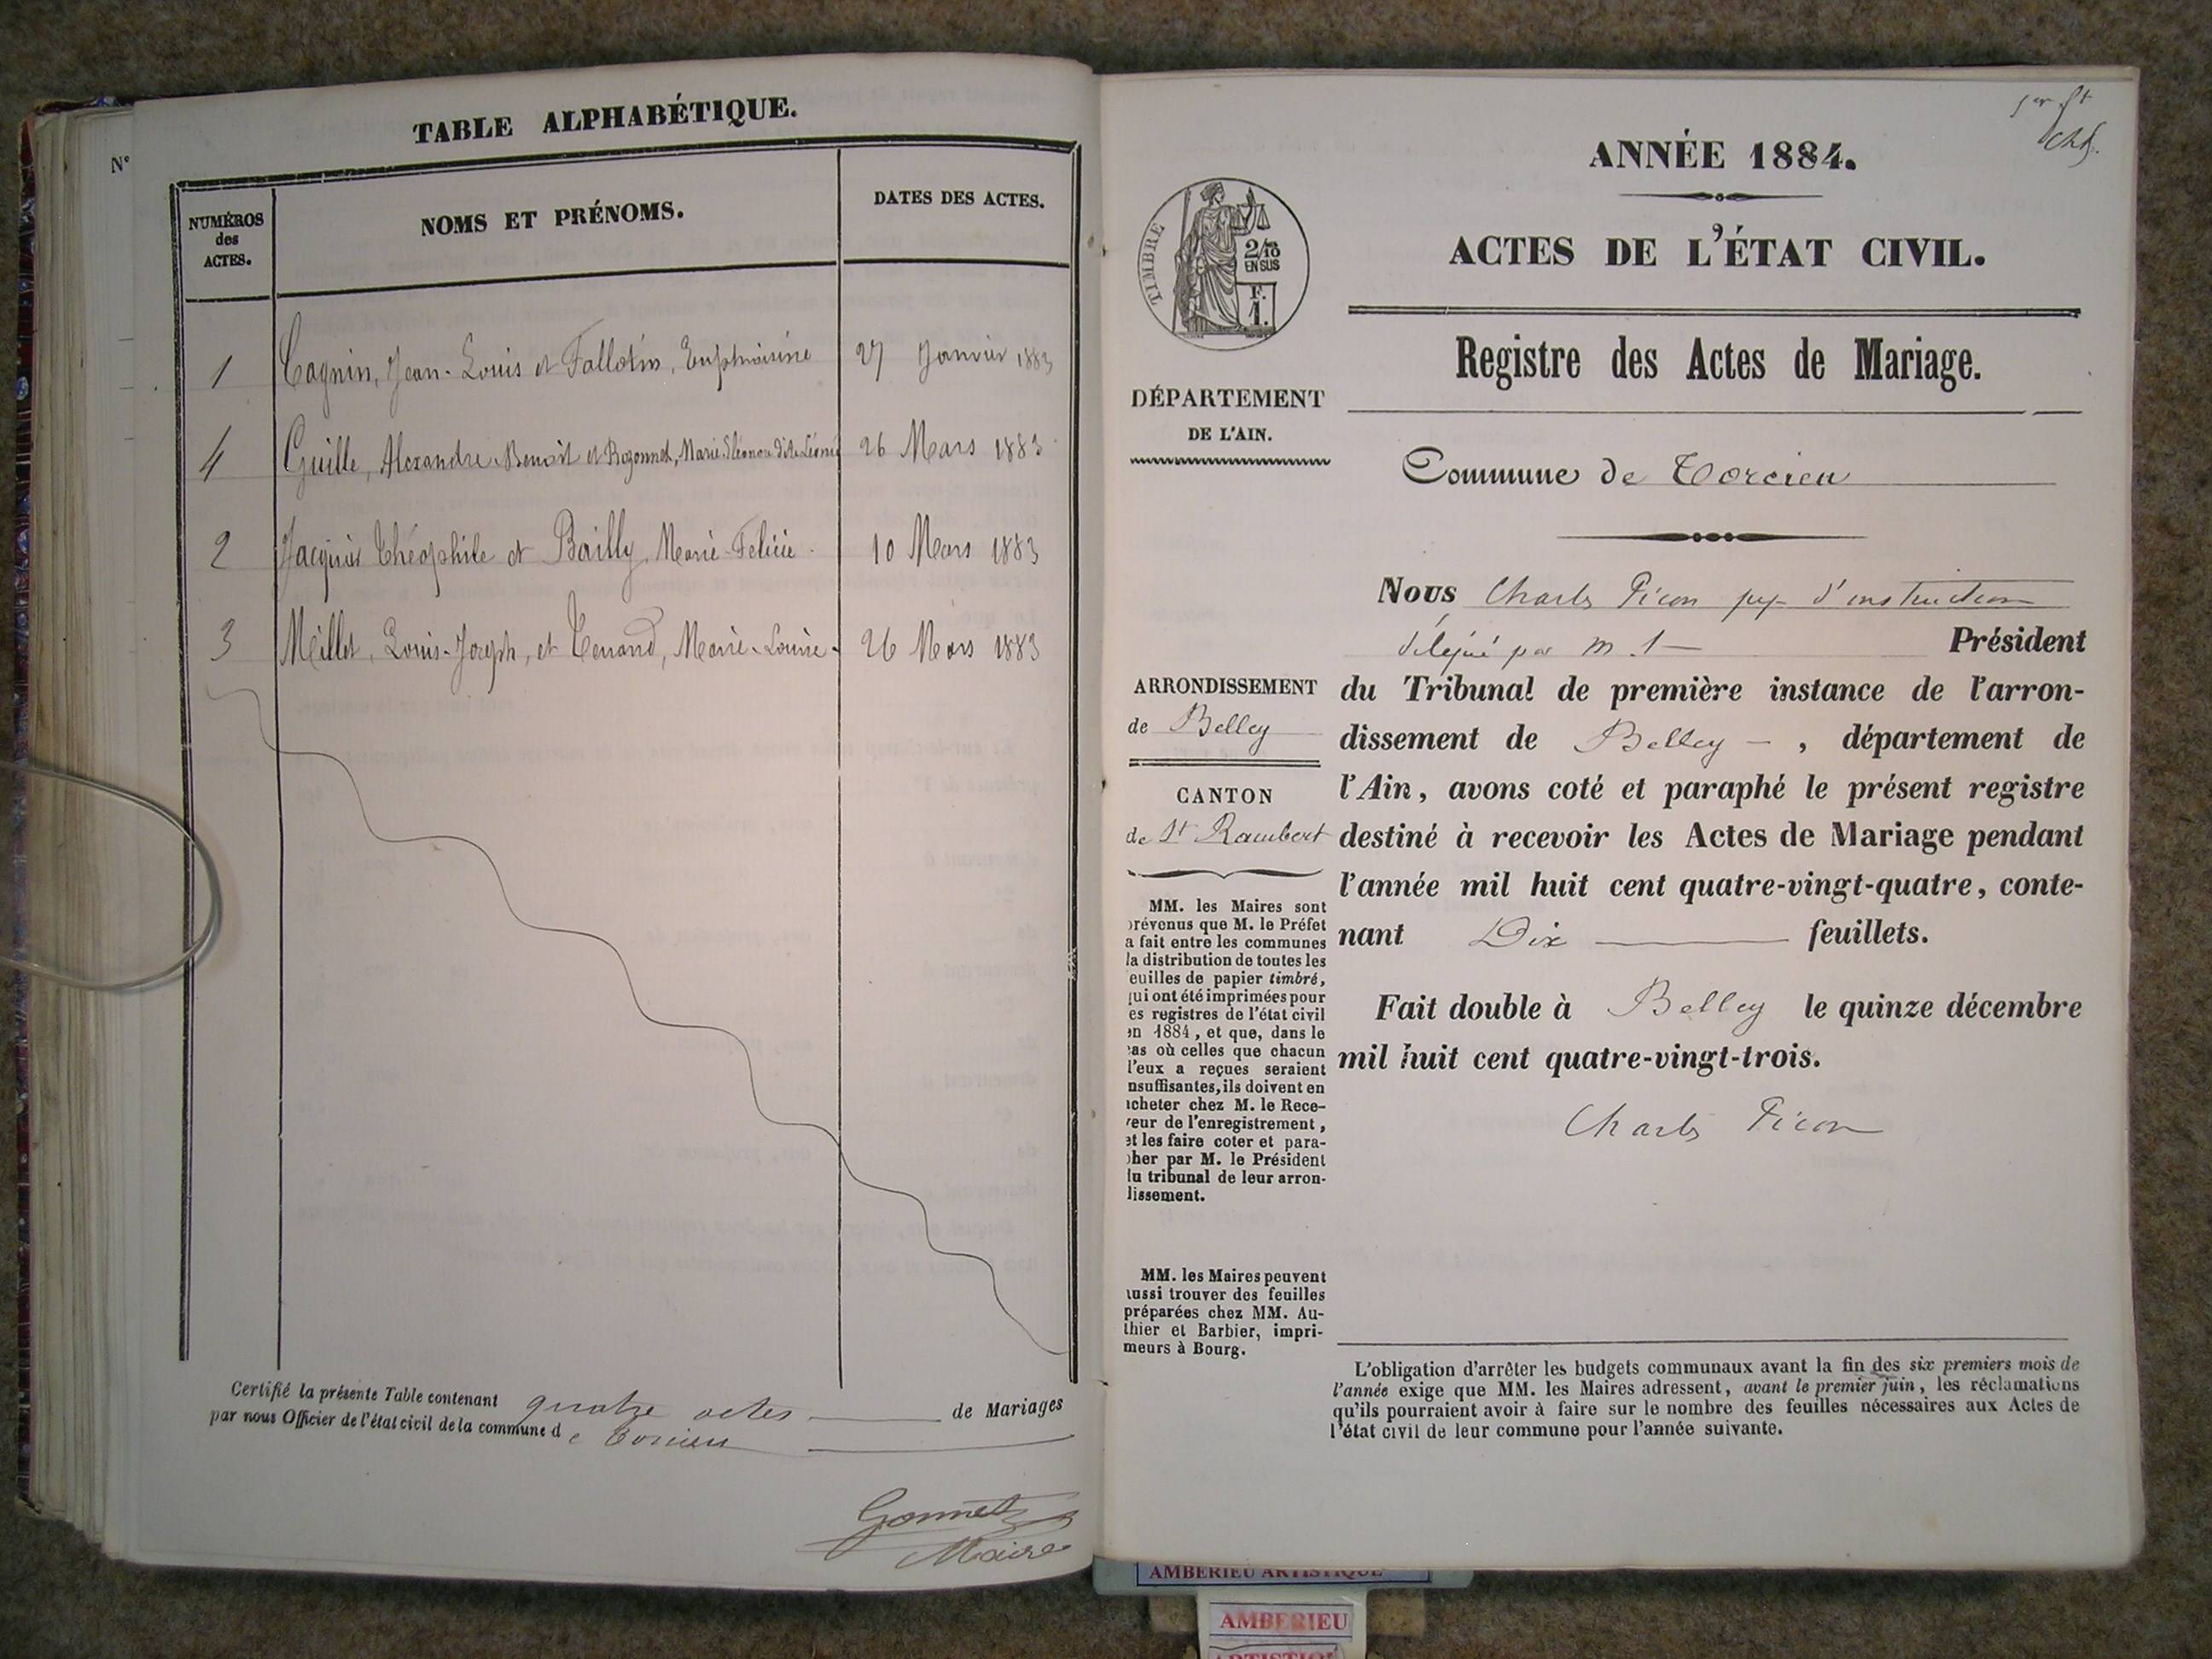 N°
TABLE ALPHABÉTIQUE.
NUMÉROS
des
ACTES.
NOMS ET PRÉNOMS.
DATES DES ACTES.
1 Cagnin, Jean-Louis et Fallotin, Euphrosine 27 Janvier 1883
4 Guille, Alexandre Benoît et Bozonnet, Marie Eléonore dite Léonie 26 Mars 1883
2 Jacquier Théophile et Bailly, Marie-Felicie. 10 Mars 1883
3 Meillet, Louis-Joseph, et Tenand, Marie-Louise 26 Mars 1883
Certifié la présente Table contenant quatre actes de Mariages
par nous Officier de l'état civil de la commune de Torcieu
Gonnet
Maire
ANNÉE 1884.
ACTES DE L'ÉTAT CIVIL.
Registre des Actes de Mariage.
TIMBRE
2/10
EN SUS
F.
1.
DÉPARTEMENT
DE L'AIN.
ARRONDISSEMENT
de Belley
CANTON
de St Rambert
MM. les Maires sont
prévenus que M. le Préfet
a fait entre les communes
la distribution de toutes les
euilles de papier timbré,
qui ont été imprimées pour
es registres de l'état civil
en 1884, et que, dans le
cas où celles que chacun
l'eux a reçues seraient
nsuffisantes, ils doivent en
acheter chez M. le Rece-
veur de l'enregistrement,
et les faire coter et para-
pher par M. le Président
du tribunal de leur arron-
dissement.
MM. les Maires peuvent
aussi trouver des feuilles
préparées chez MM. Au-
thier et Barbier, impri-
meurs à Bourg.
Commune de Torcieu
Nous Charles Picon juge d'instruction
délégué par M. le Président
du Tribunal de première instance de l'arron-
dissement de Belley - , département de
l'Ain, avons coté et paraphé le présent registre
destiné à recevoir les Actes de Mariage pendant
l'année mil huit cent quatre-vingt-quatre, conte-
nant Dix feuillets.
Fait double à Belley le quinze décembre
mil huit cent quatre-vingt-trois.
Charles Picon
L'obligation d'arrêter les budgets communaux avant la fin des six premiers mois de
l'année exige que MM. les Maires adressent, avant le premier juin, les réclamations
qu'ils pourraient avoir à faire sur le nombre des feuilles nécessaires aux Actes de
l'état civil de leur commune pour l'année suivante.
AMBERIEU ARTISTIQUE
AMBERIEU
ARTISTIQUE